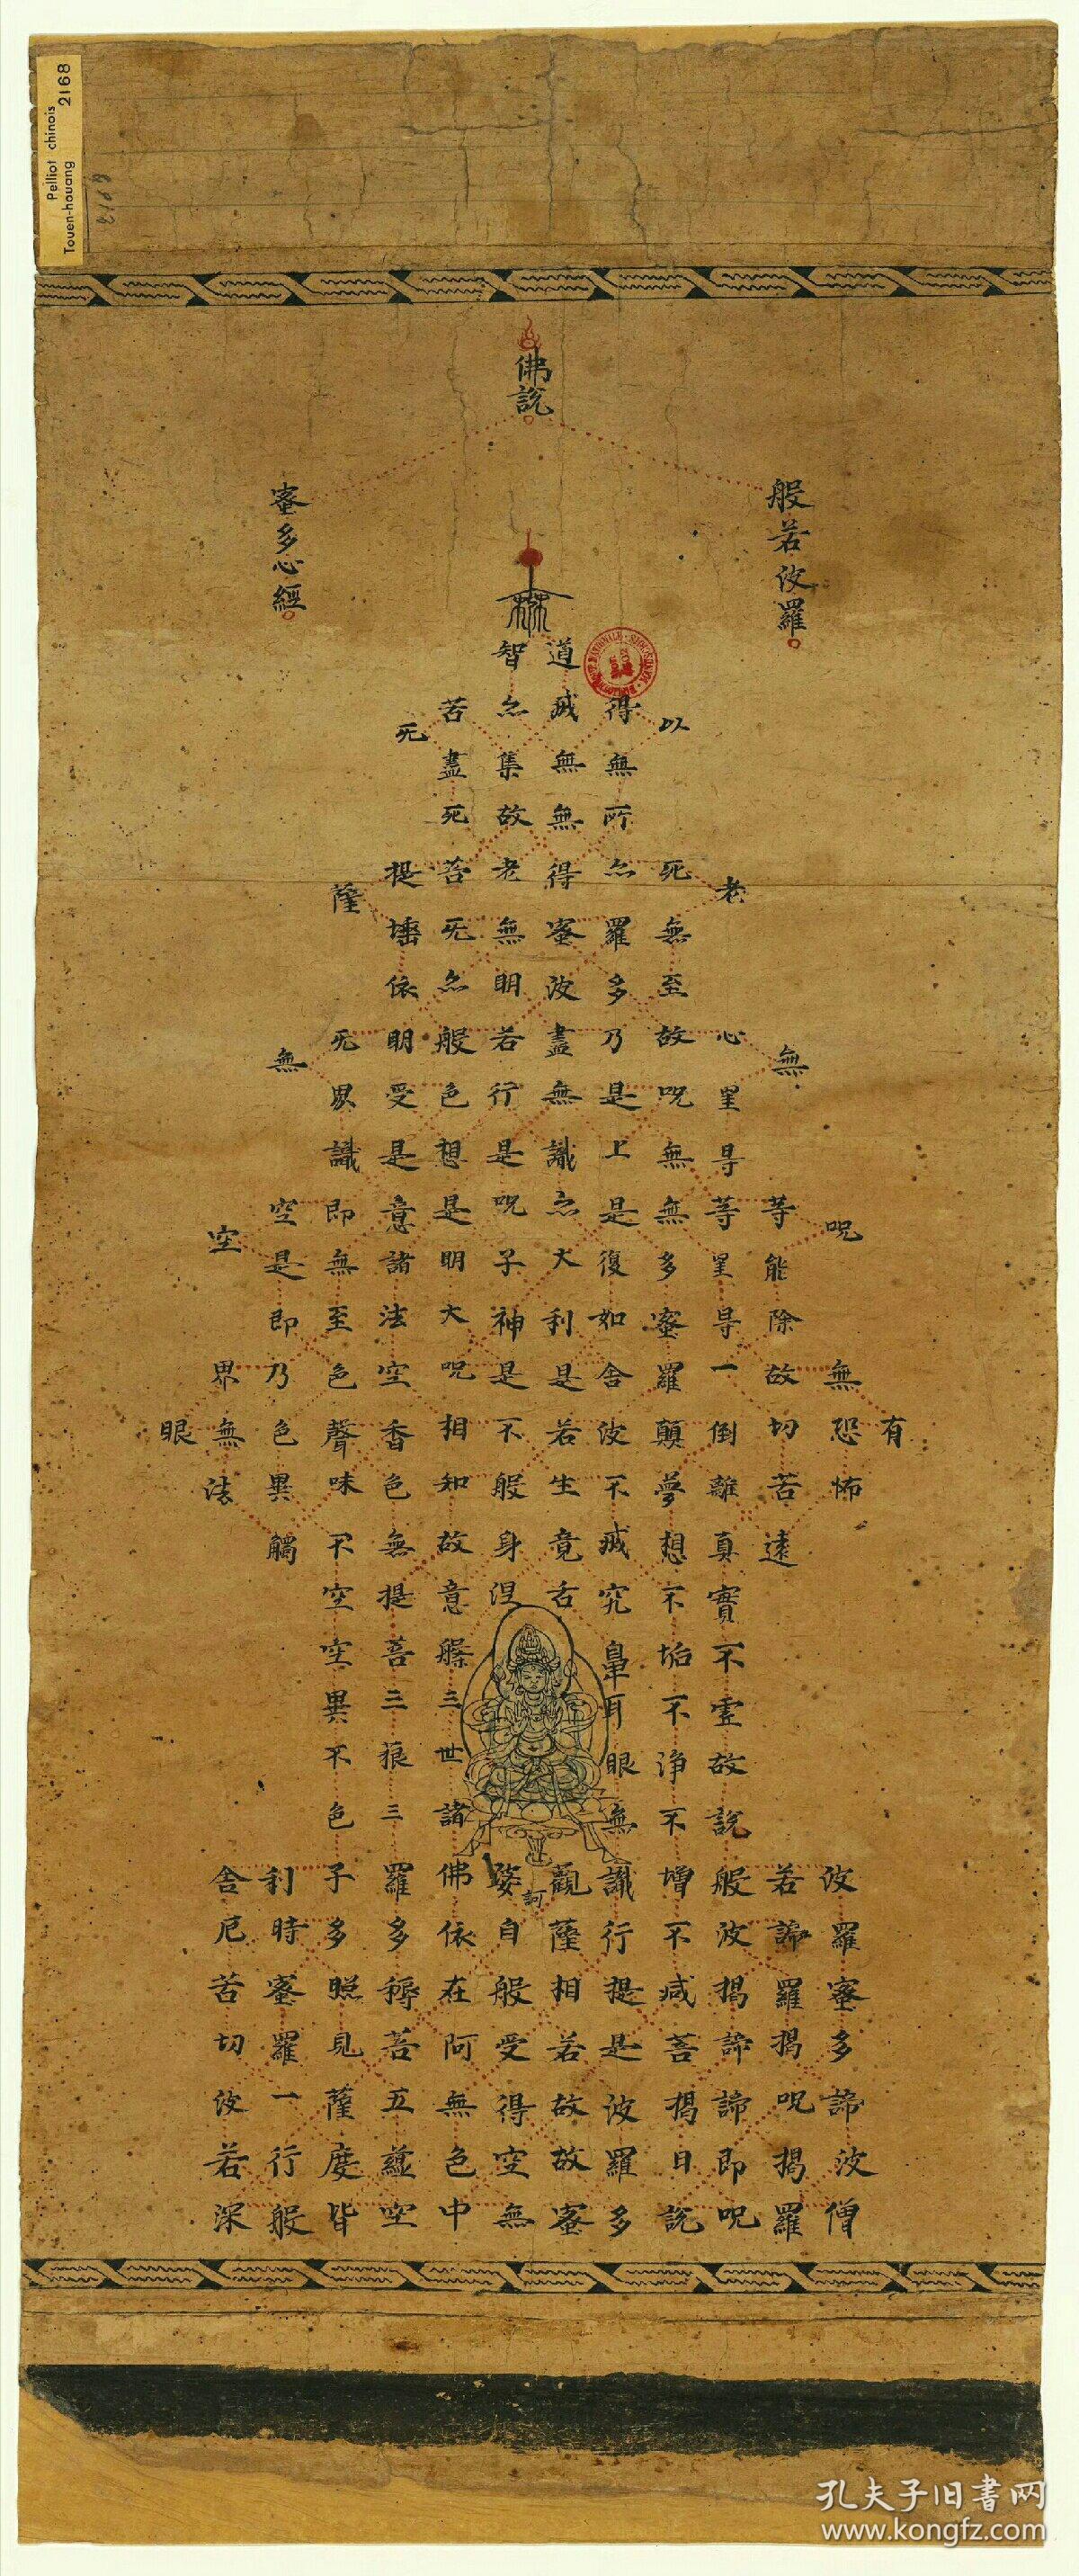 佛說
般若波羅
蜜多心經
有
呪無恐怖波羅蜜多諦波僧
無等能除故切苦遠若諦羅揭呪揭羅
老心里㝵等里㝵一倒離真實不虛故說般波揭諦諦即呪
以死無至故呪無無多蜜羅顛夢想不垢不淨不增不減菩揭曰說
得無所亦羅多乃是上是復如舍波不滅究鼻耳眼無識行提是波羅多
道滅無無得蜜波盡無識亦大利是若生竟舌觀薩相若故故蜜
智亦集故老無明若行是呪子神是不般身涅婆訶自般受得空無
苦盡死菩无亦般色想是明大呪相知故意槃三世諸佛依在阿無色中
无提埵依明受是意諸法空香色無提菩三藐三羅多耨若五蘊空
薩无界識即無至色聲味不空空異不色子多照見薩度皆
無空是即乃色異觸利時蜜羅一行般
空界無法舍厄苦切波若深
眼
Pelliot chinois
Touen-houang 2168
2168
孔夫子旧书网
www.kongfz.com